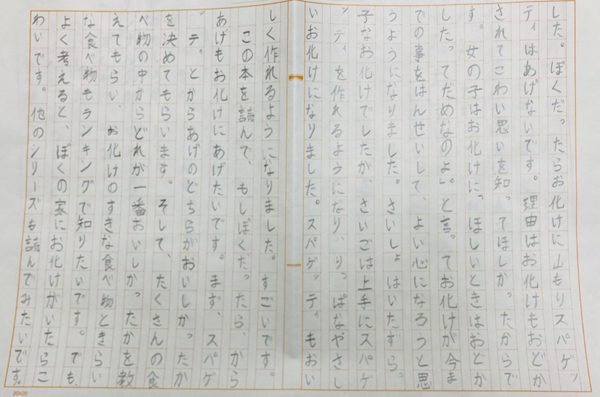 した。ぼくだったらお化けに山もりスパゲッ
ティはあげないです。理由はお化けもおどか
されてこわい思いを知ってほしかったからで
す。女の子はお化けに「ほしいときはおどか
したってだめなのよ。」と言ってお化けが今ま
での事をはんせいして、よい心になろうと思
うようになりました。さいしょはいたずらっ
子なお化けでしたが、さいごは上手にスパゲ
ッティを作れるようになり、りっぱなやさし
いお化けになりました。スパゲッティもおい
しく作れるようになりました。すごいです。
この本を読んで、もしぼくだったら、から
あげもお化けにあげたいです。まず、スパゲ
ッティとからあげのどちらがおいしかったか
を決めてもらいます。そして、たくさんの食
べ物の中からどれが一番おいしかったかを教
えてもらい、お化けのすきな食べ物ときらい
な食べ物もランキングで知りたいです。でも、
よく考えると、ぼくの家にお化けがいたらこ
わいです。他のシリーズも読んでみたいです。
20×20